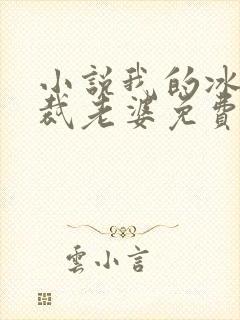 小説我的冰
裁老婆免費
雲小言